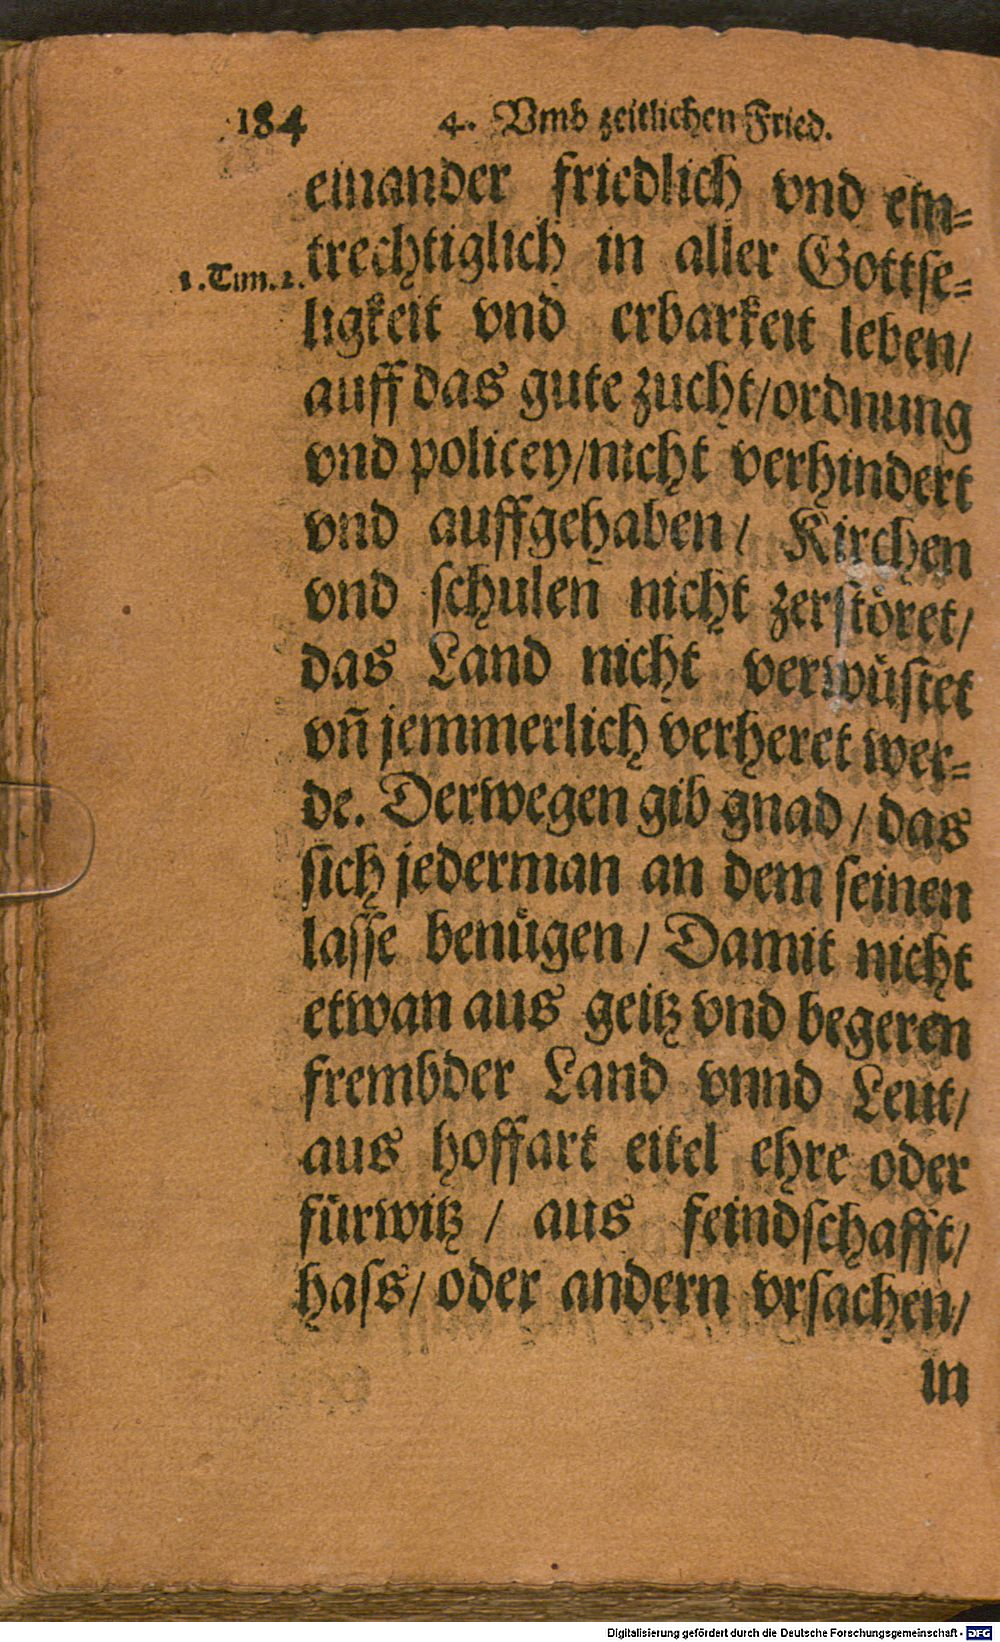 184 4. Vmb zeitlichen Fried.
einander friedlich vnd ein-
trechtiglich in aller Gottse-
1. Tim. 2.
ligkeit vnd erbarkeit leben/
auff das gute zucht/ordnung
vnd policey/nicht verhindert
vnd auffgehaben/ Kirchen
vnd schulen nicht zerstöret/
das Land nicht verwüstet
vñ jemmerlich verheret wer-
de. Derwegen gib gnad/ das
sich jederman an dem seinen
lasse benügen/ Damit nicht
etwan aus geitz vnd begeren
frembder Land vnnd Leut/
aus hoffart eitel ehre oder
fürwitz/ aus feindschafft/
hass/ oder andern vrsachen/
in
Digitalisierung gefördert durch die Deutsche Forschungsgemeinschaft - DFG